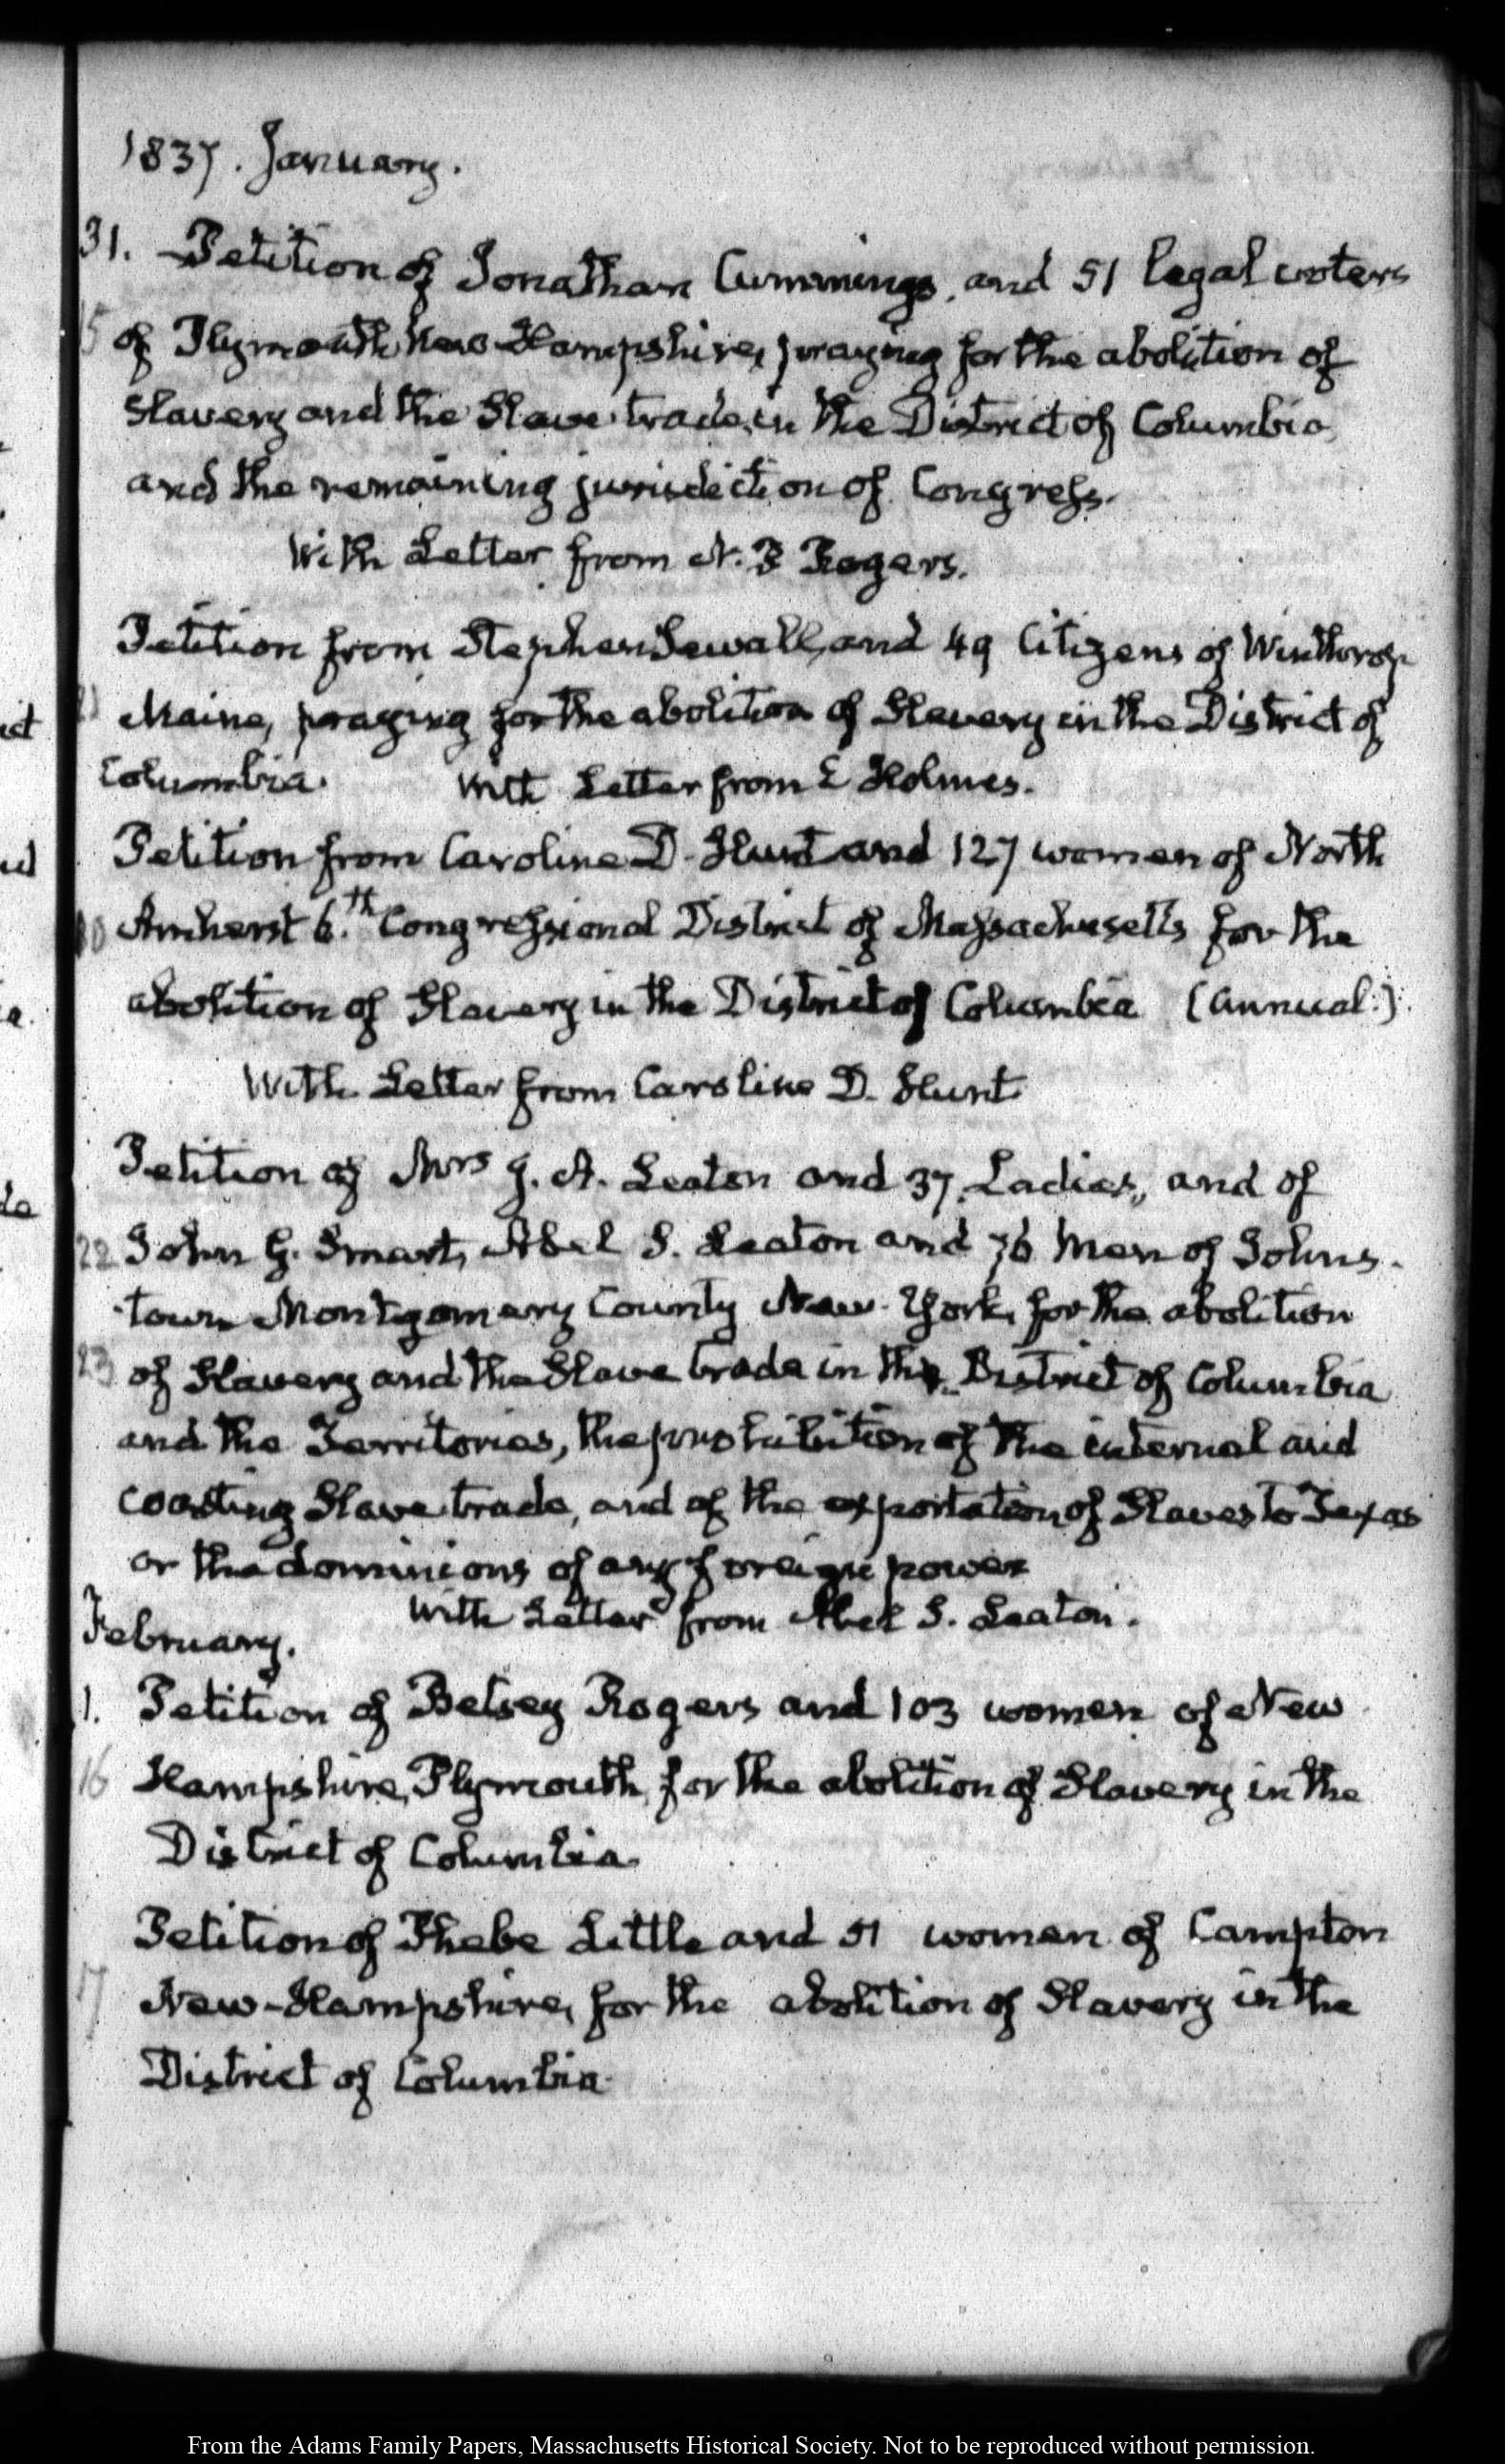 1837. January.
31. Petition of Jonathan Cummings, and 51 legal voters
15 of Plymouth New-Hampshire, praying for the abolition of
Slavery and the Slave trade, in the District of Columbia
and the remaining jurisdiction of Congress.
With Letter from N. P Rogers.
Petition from Stephen Sewall, and 49 Citizens of Winthrop
21 Maine, praying for the abolition of Slavery in the District of
Columbia. With Letter from E Holmes.
Petition from Caroline D. Hunt and 127 women of North
Amherst 6.th Congressional District of Massachusetts for the
abolition of Slavery in the District of Columbia (annual.)
With Letter from Caroline D. Hunt
Petition of Mrs J. A. Seaton and 37 Ladies, and of
22 John G. Smart, Abel S. Seaton and 76 Men of Johns-
town Montgomery County New-York, for the abolition
23 of Slavery and the Slave trade in the District of Columbia
and the Territories, the prohibition of the internal and
coasting Slave trade, and of the exportation of Slaves to Texas
or the dominions of any foreign power
With Letter from Abel S. Seaton.
February.
1. Petition of Betsey Rogers and 103 women of New
16 Hampshire, Plymouth, for the abolition of Slavery in the
District of Columbia
Petition of Phebe Little and 51 women of Campton
17 New-Hampshire, for the abolition of Slavery in the
District of Columbia
From the Adams Family Papers, Massachusetts Historical Society. Not to be reproduced without permission.